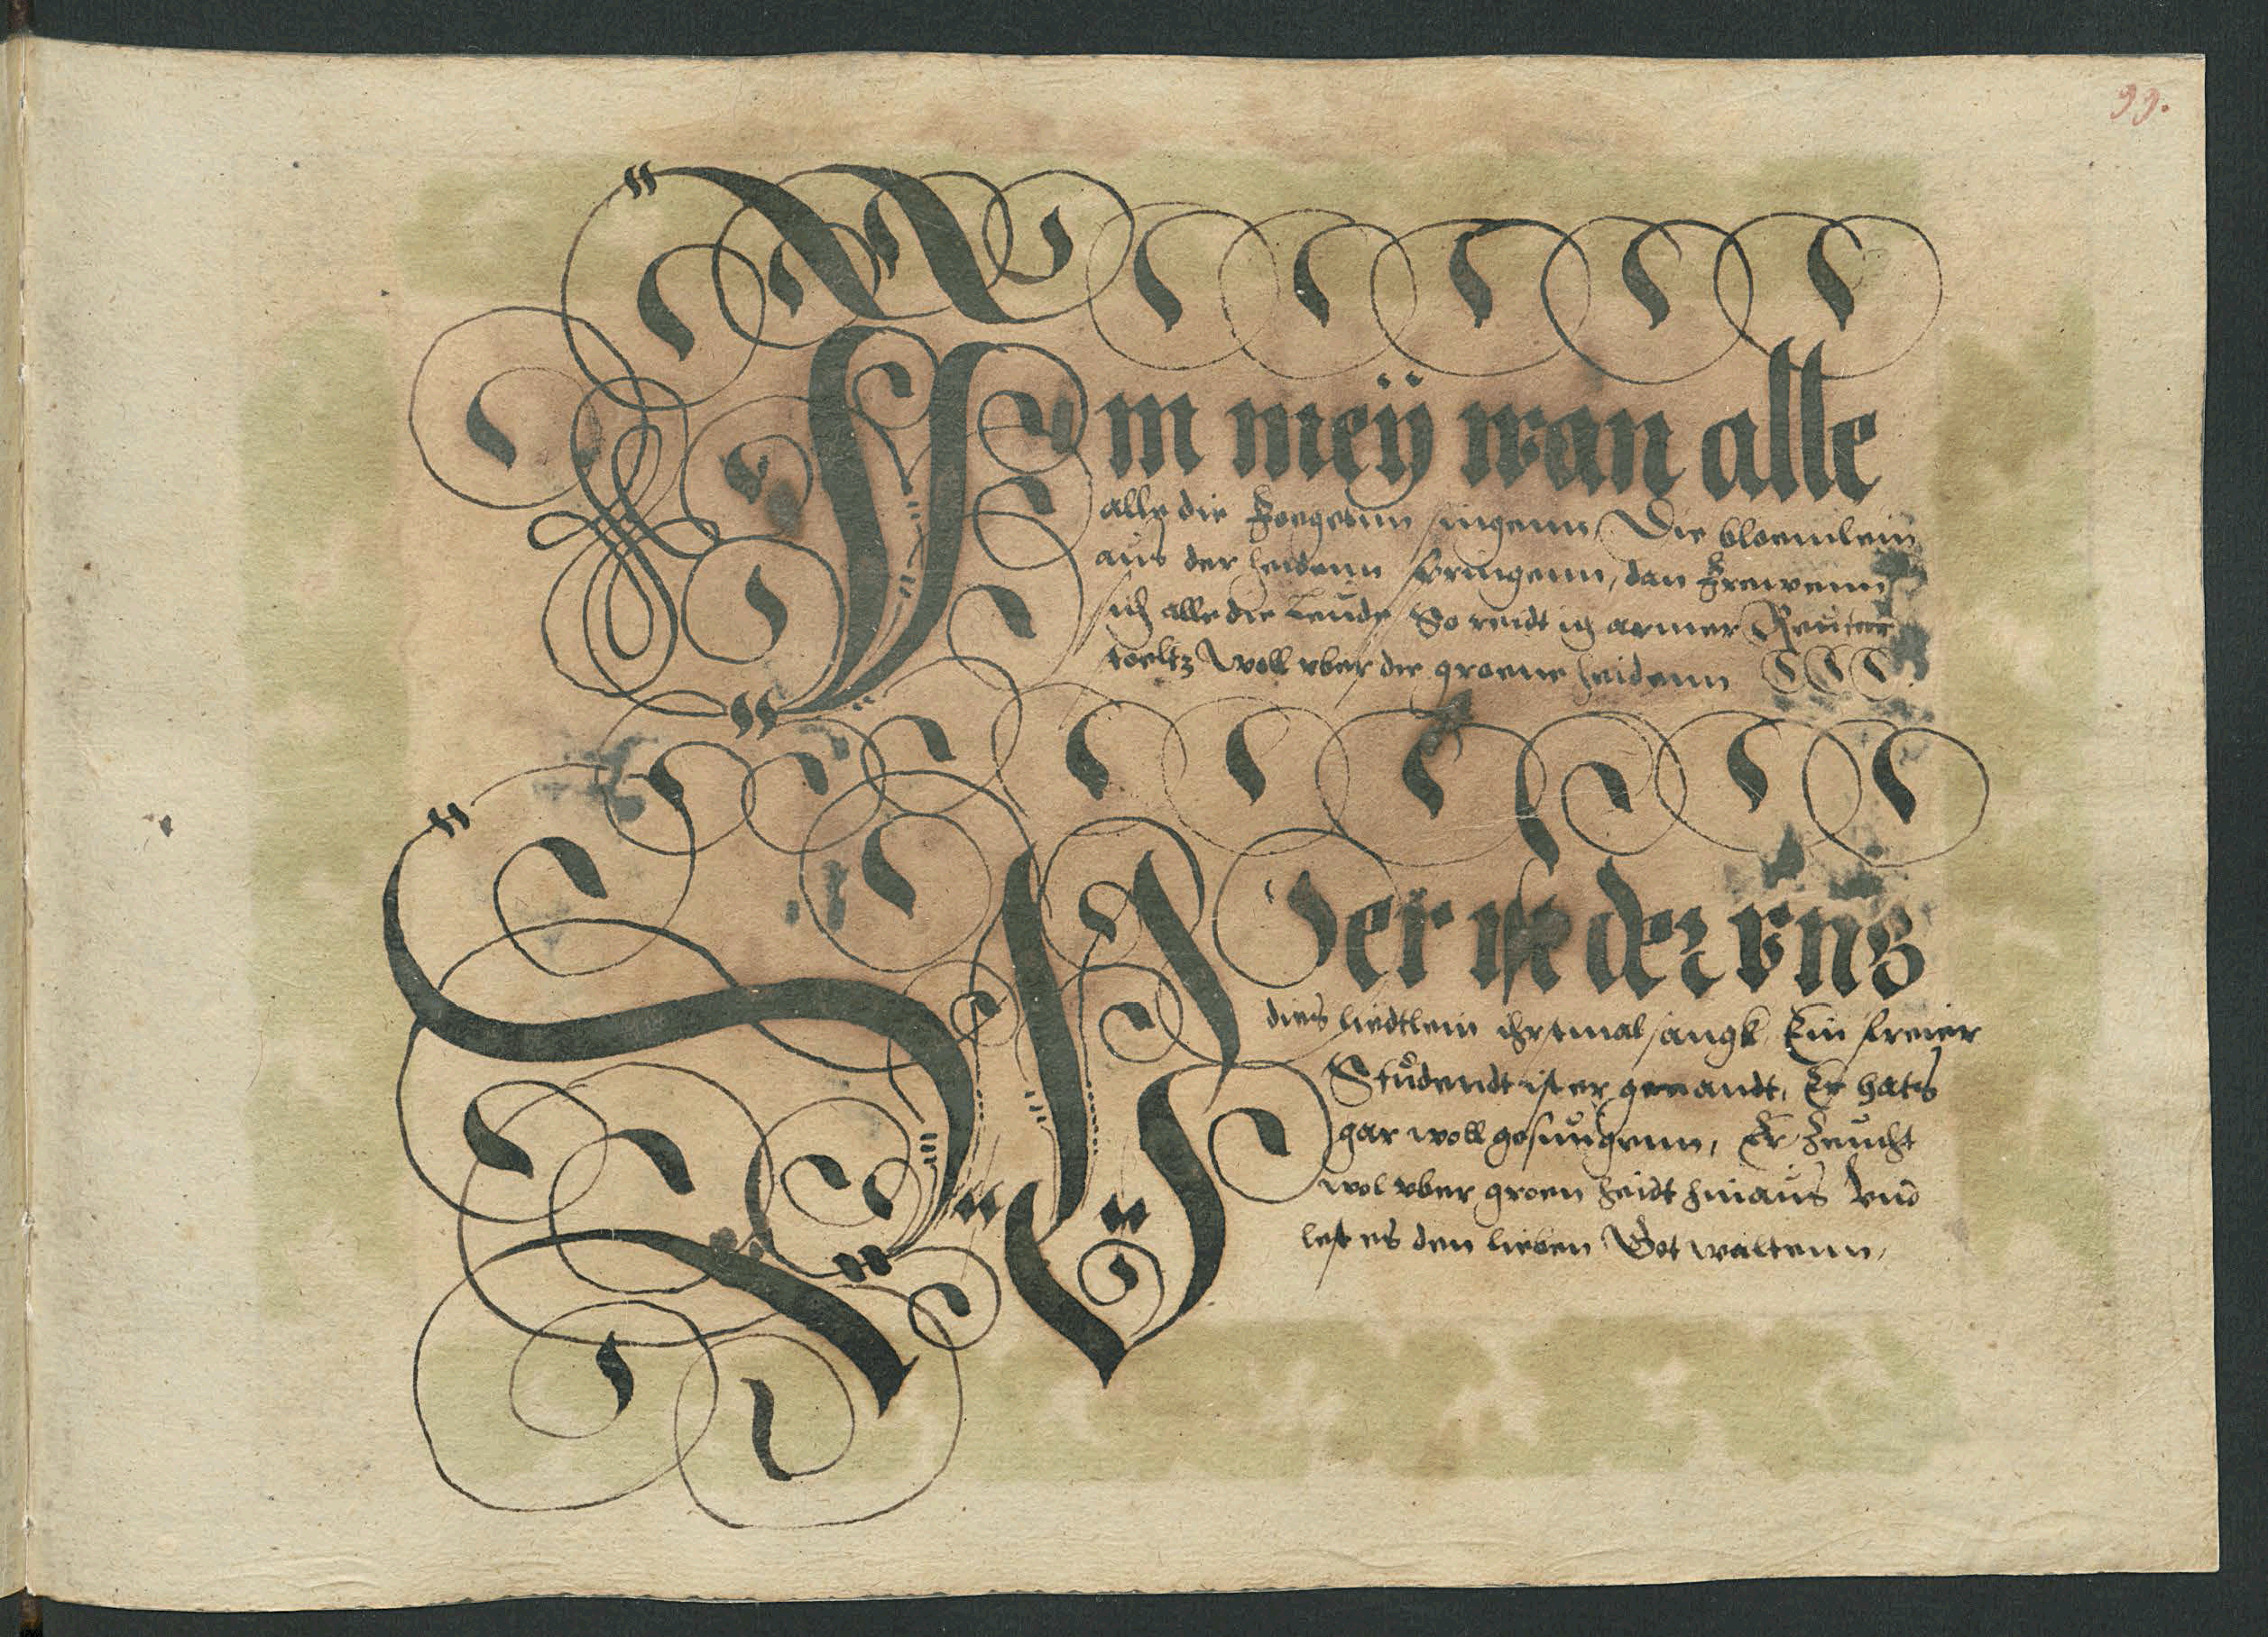 99.
Im meÿ wan alle
alle die Foegetnn singenn, Die bloemlein
aus der heidenn springenn, dan frewenn
sich alle die Leude So reidt ich armer Reuter
stoeltz woll vber die groene heidenn
Wer ist der vns
dies liedtlein ehrstmal sangk Ein freier
Studendt ist er genandt, Er hats
gar woll gesungenn, Er zeucht
wol vber groen heidt hinaus Vnd
lest es den lieben Got waltenn,